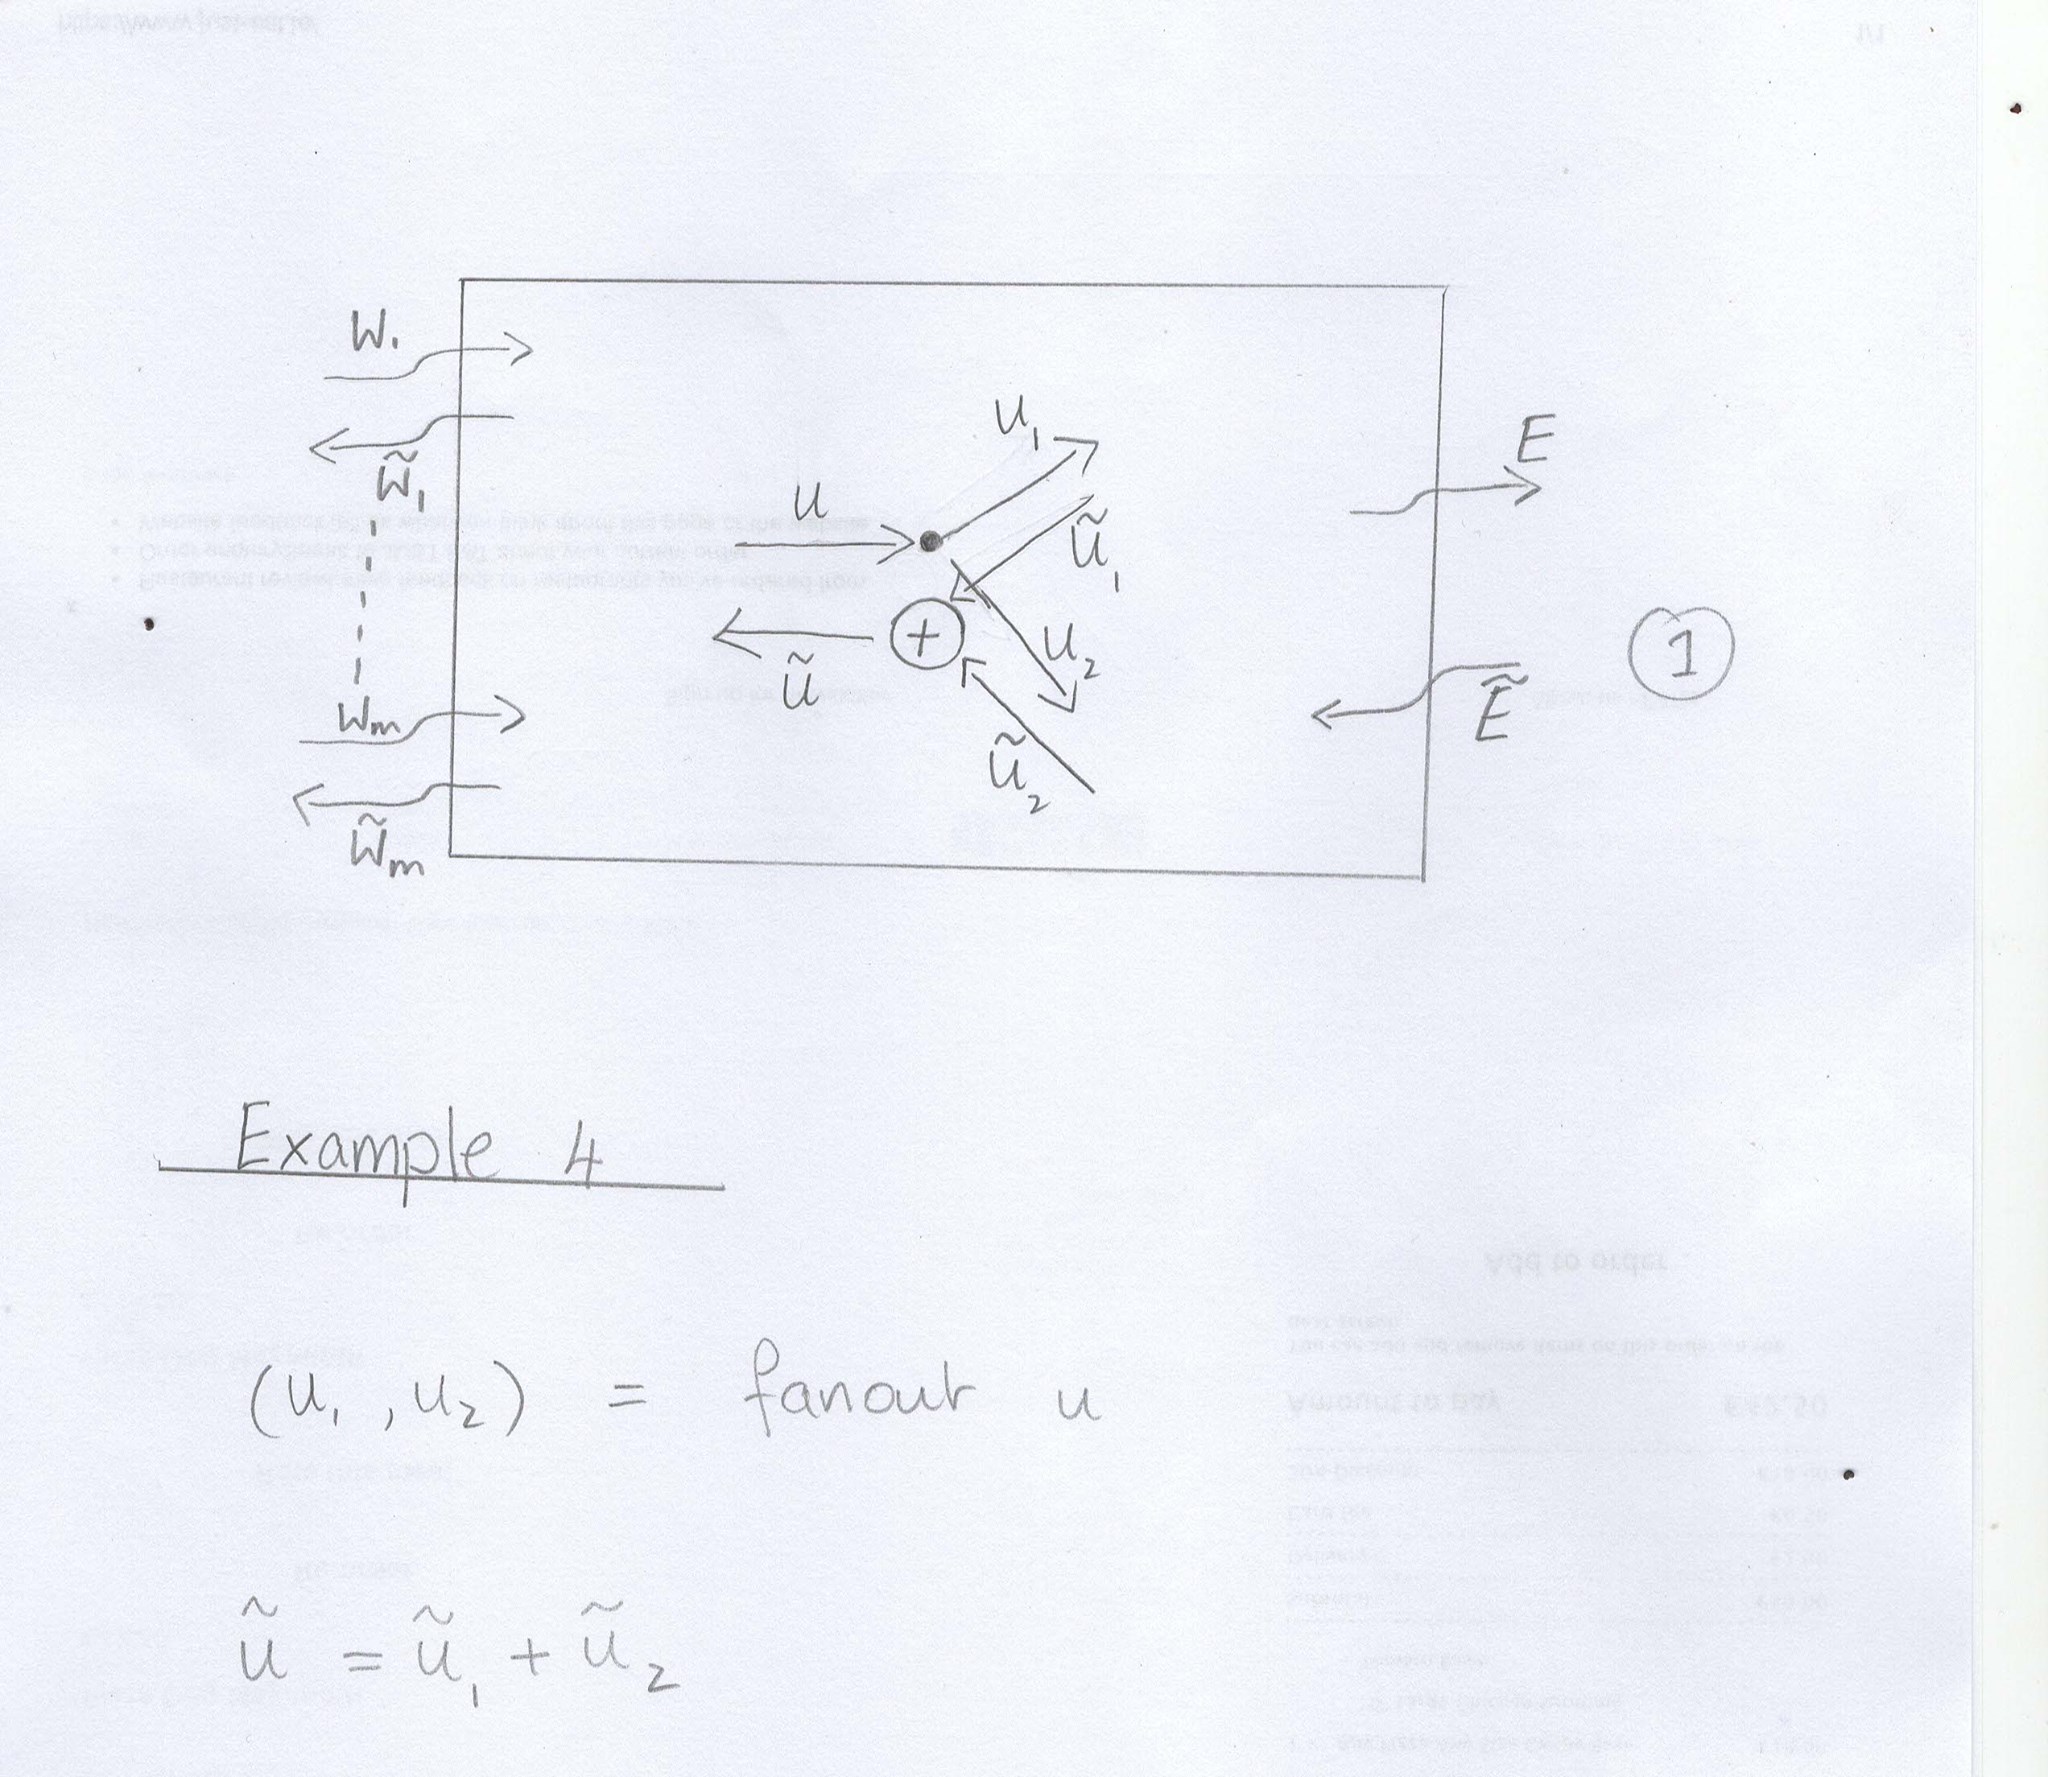 W₁
W̃₁
Wₘ
W̃ₘ
u
u₁
ũ₁
u₂
ũ₂
+
ũ
E
Ẽ
1
Example 4
(u₁, u₂) = fanout u
ũ = ũ₁ + ũ₂